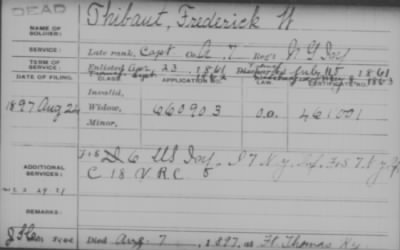 DEAD
NAME OF SOLDIER: Thibaut, Frederick W
SERVICE: Late rank, Capt Co. A, 7 Reg't N Y Inf
TERM OF SERVICE: Enlisted Apr. 23, 1861 Discharged July 1861
DATE OF FILING. CLASS. APPLICATION NO. LAW. CERTIFICATE NO.
Invalid,
1897 Aug 24 Widow, 660903 O.D. 461091
Minor,
ADDITIONAL SERVICES: D 6 US Inf. 7 N.Y. Inf. F&S 7 N.Y.
C 18 V.R.C.
REMARKS:
Died Aug. 7, 1897, at Ft. Thomas Ky